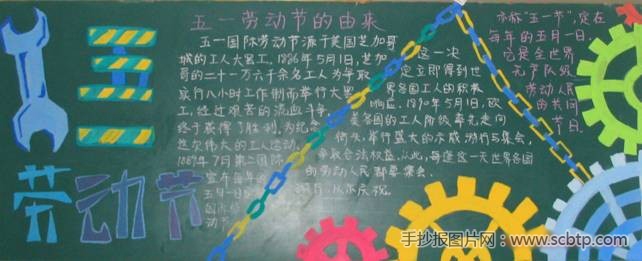 五一劳动节的由来
五一国际劳动节源于美国芝加哥
城的工人大罢工,1886年5月1日,芝加
哥的二十一万六千余名工人为争取
实行八小时工作制而举行大罢
工,经过艰苦的流血斗争,
终于获得了胜利,为纪念
这次伟大的工人运动,
1889年7月第二国际
宣布每年的
五月一日
国际
动节
这一决
定立即得到世
界各国工人的积极
响应,1890年5月1日,欧
美各国的工人阶级率先走向
街头,举行盛大的示威游行与集会,
争取合法权益,从此,每逢这一天世界各国
的劳动人民都要集会、
游行,以示庆祝。
亦称"五一节",定在
每年的五月一日。
它是全世界
无产阶级
劳动人民
的共同
节日。
五一
劳动节
手抄报图片网:www.scbtp.com